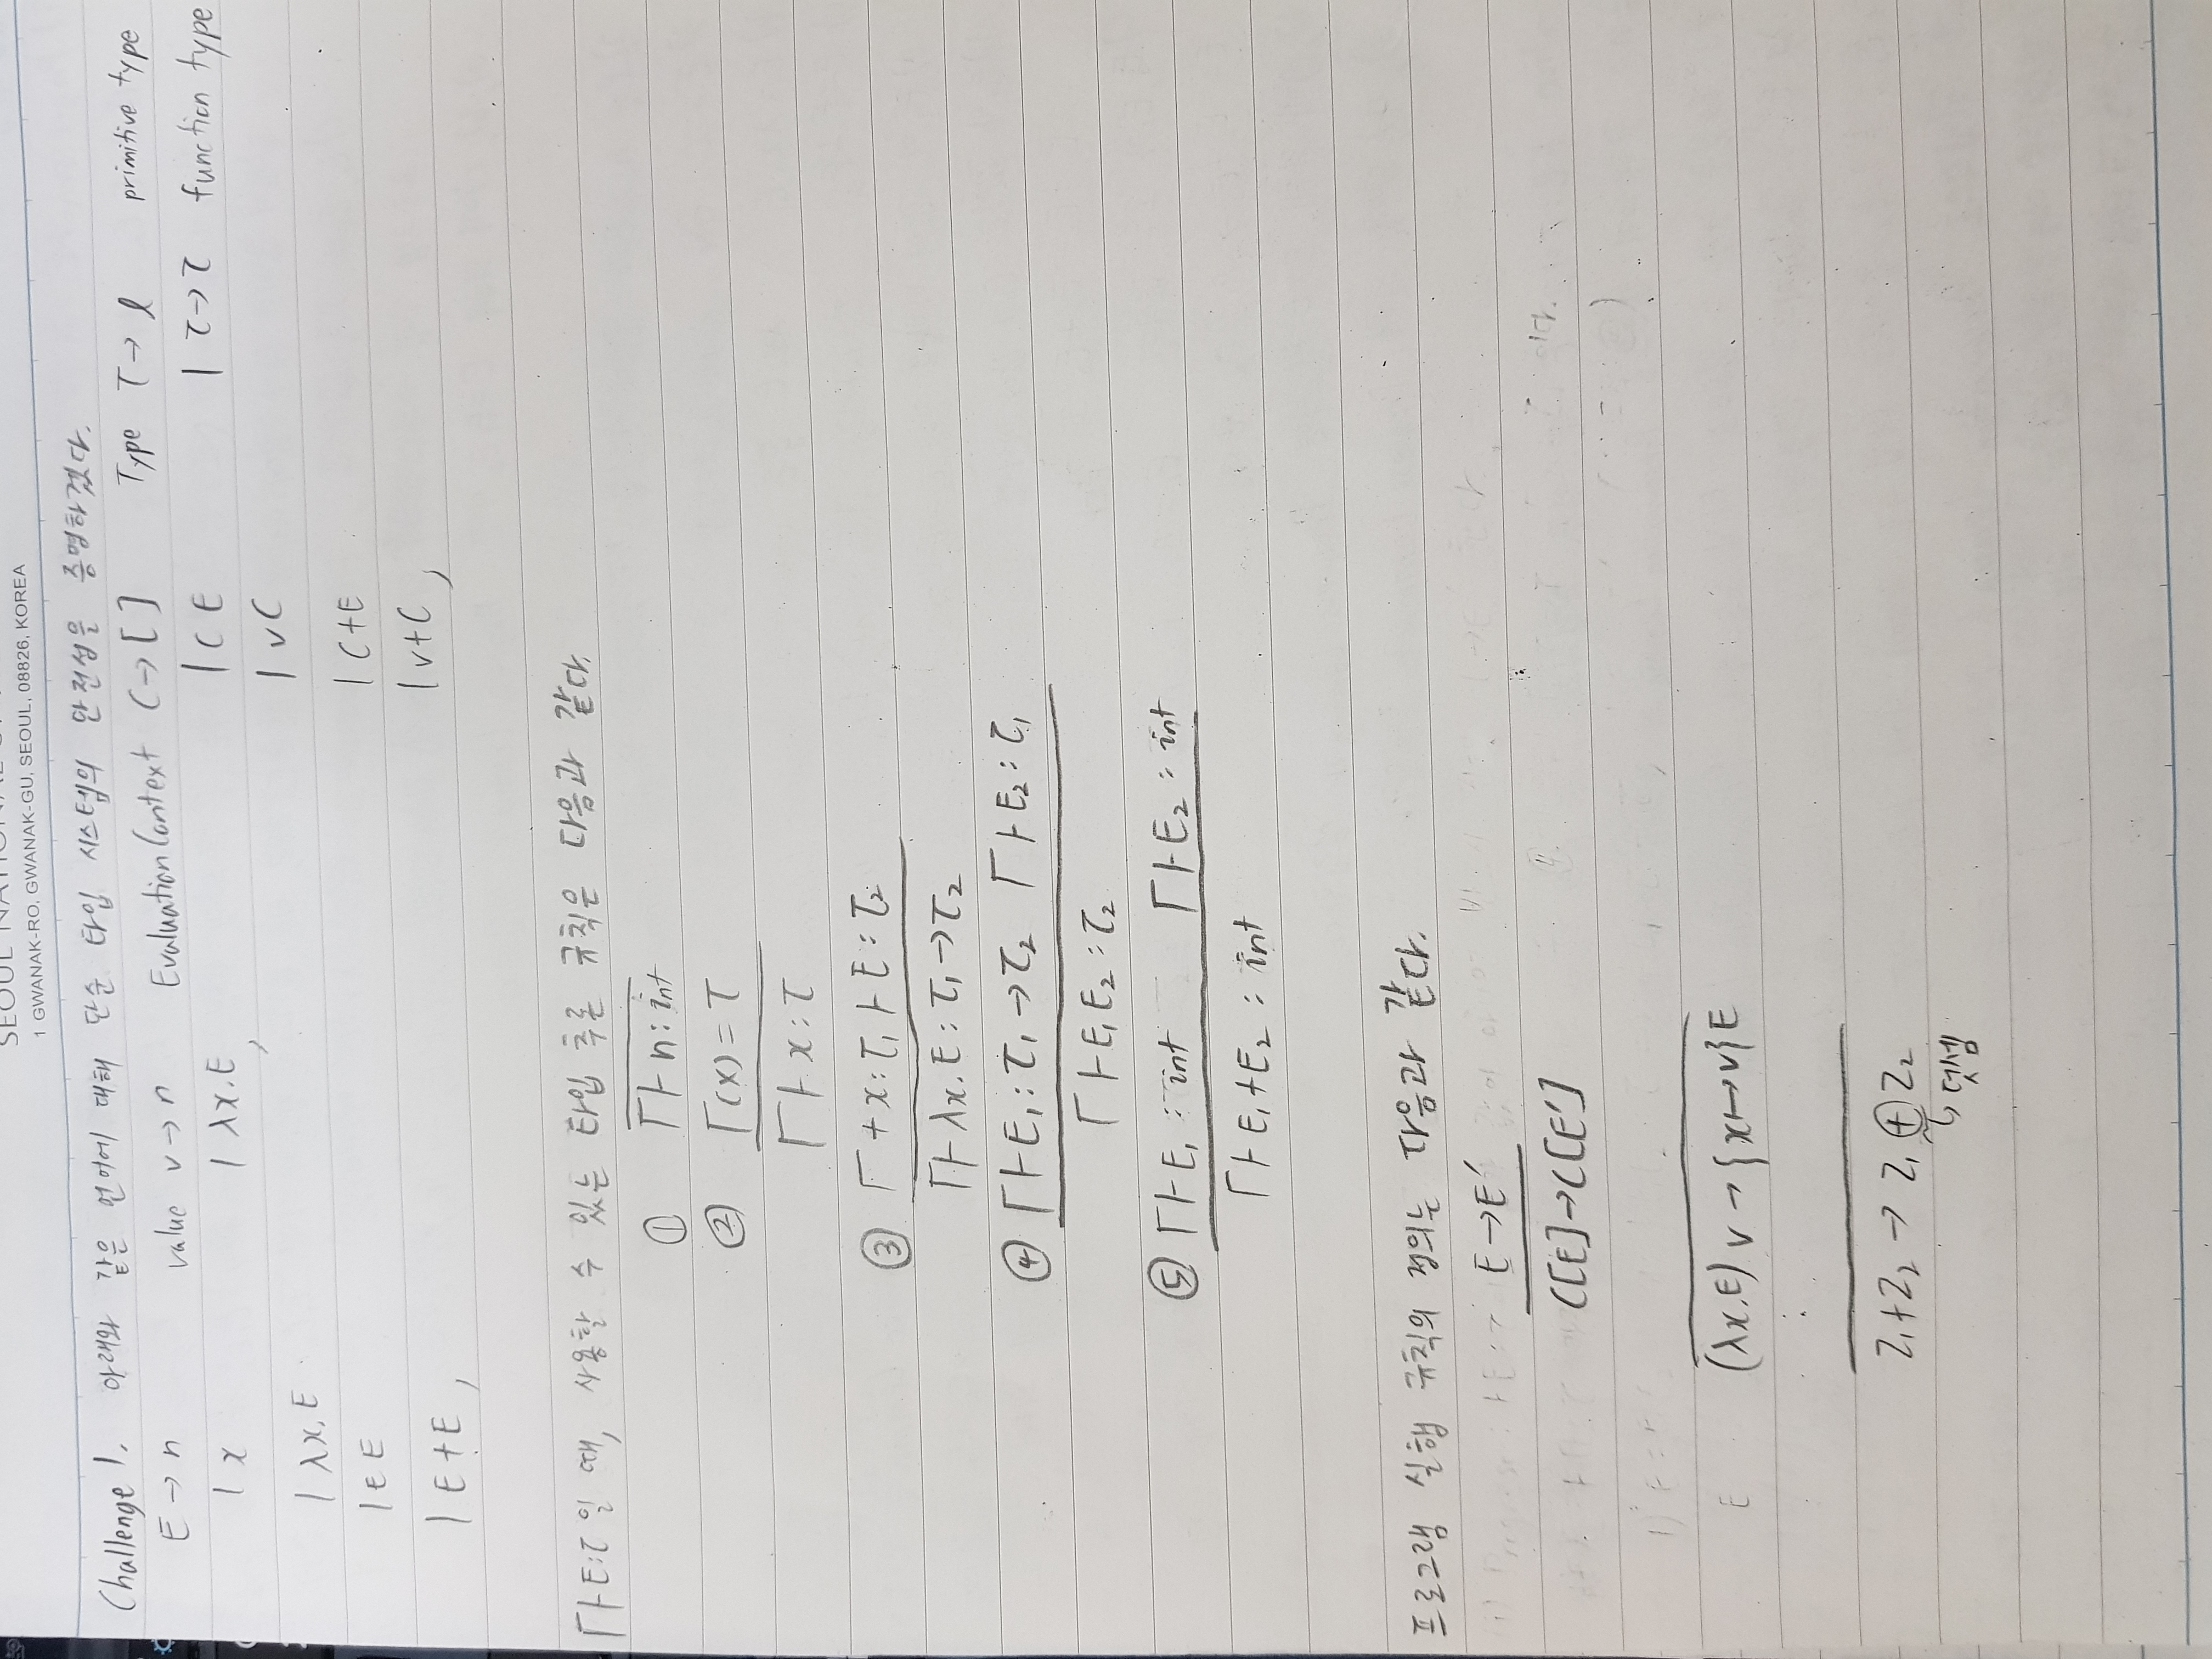 1 GWANAK-RO, GWANAK-GU, SEOUL, 08826, KOREA
Challenge 1. 아래와 같은 언어에 대해 단순 타입 시스템의 안전성을 증명하겠다.
E → n value v → n Evaluation Context C → [ ] Type τ → ι primitive type
| x | λx.E, | C E | τ → τ function type
| v C
| λx.E
| E E | C+E
| E+E, | v+C,
Γ⊢E:τ 일 때, 사용할 수 있는 타입 추론 규칙은 다음과 같다.
① Γ⊢n:int
② Γ(x)=τ
Γ⊢x:τ
③ Γ+x:τ₁⊢E:τ₂
Γ⊢λx.E:τ₁→τ₂
④ Γ⊢E₁:τ₁→τ₂ Γ⊢E₂:τ₁
Γ⊢E₁E₂:τ₂
⑤ Γ⊢E₁:int Γ⊢E₂:int
Γ⊢E₁+E₂:int
프로그램 실행 규칙의 정의는 다음과 같다.
E→E′
C[E]→C[E′]
(λx.E) v → {x↦v}E
Z₁+Z₂ → Z₁⊕Z₂
↳ 덧셈